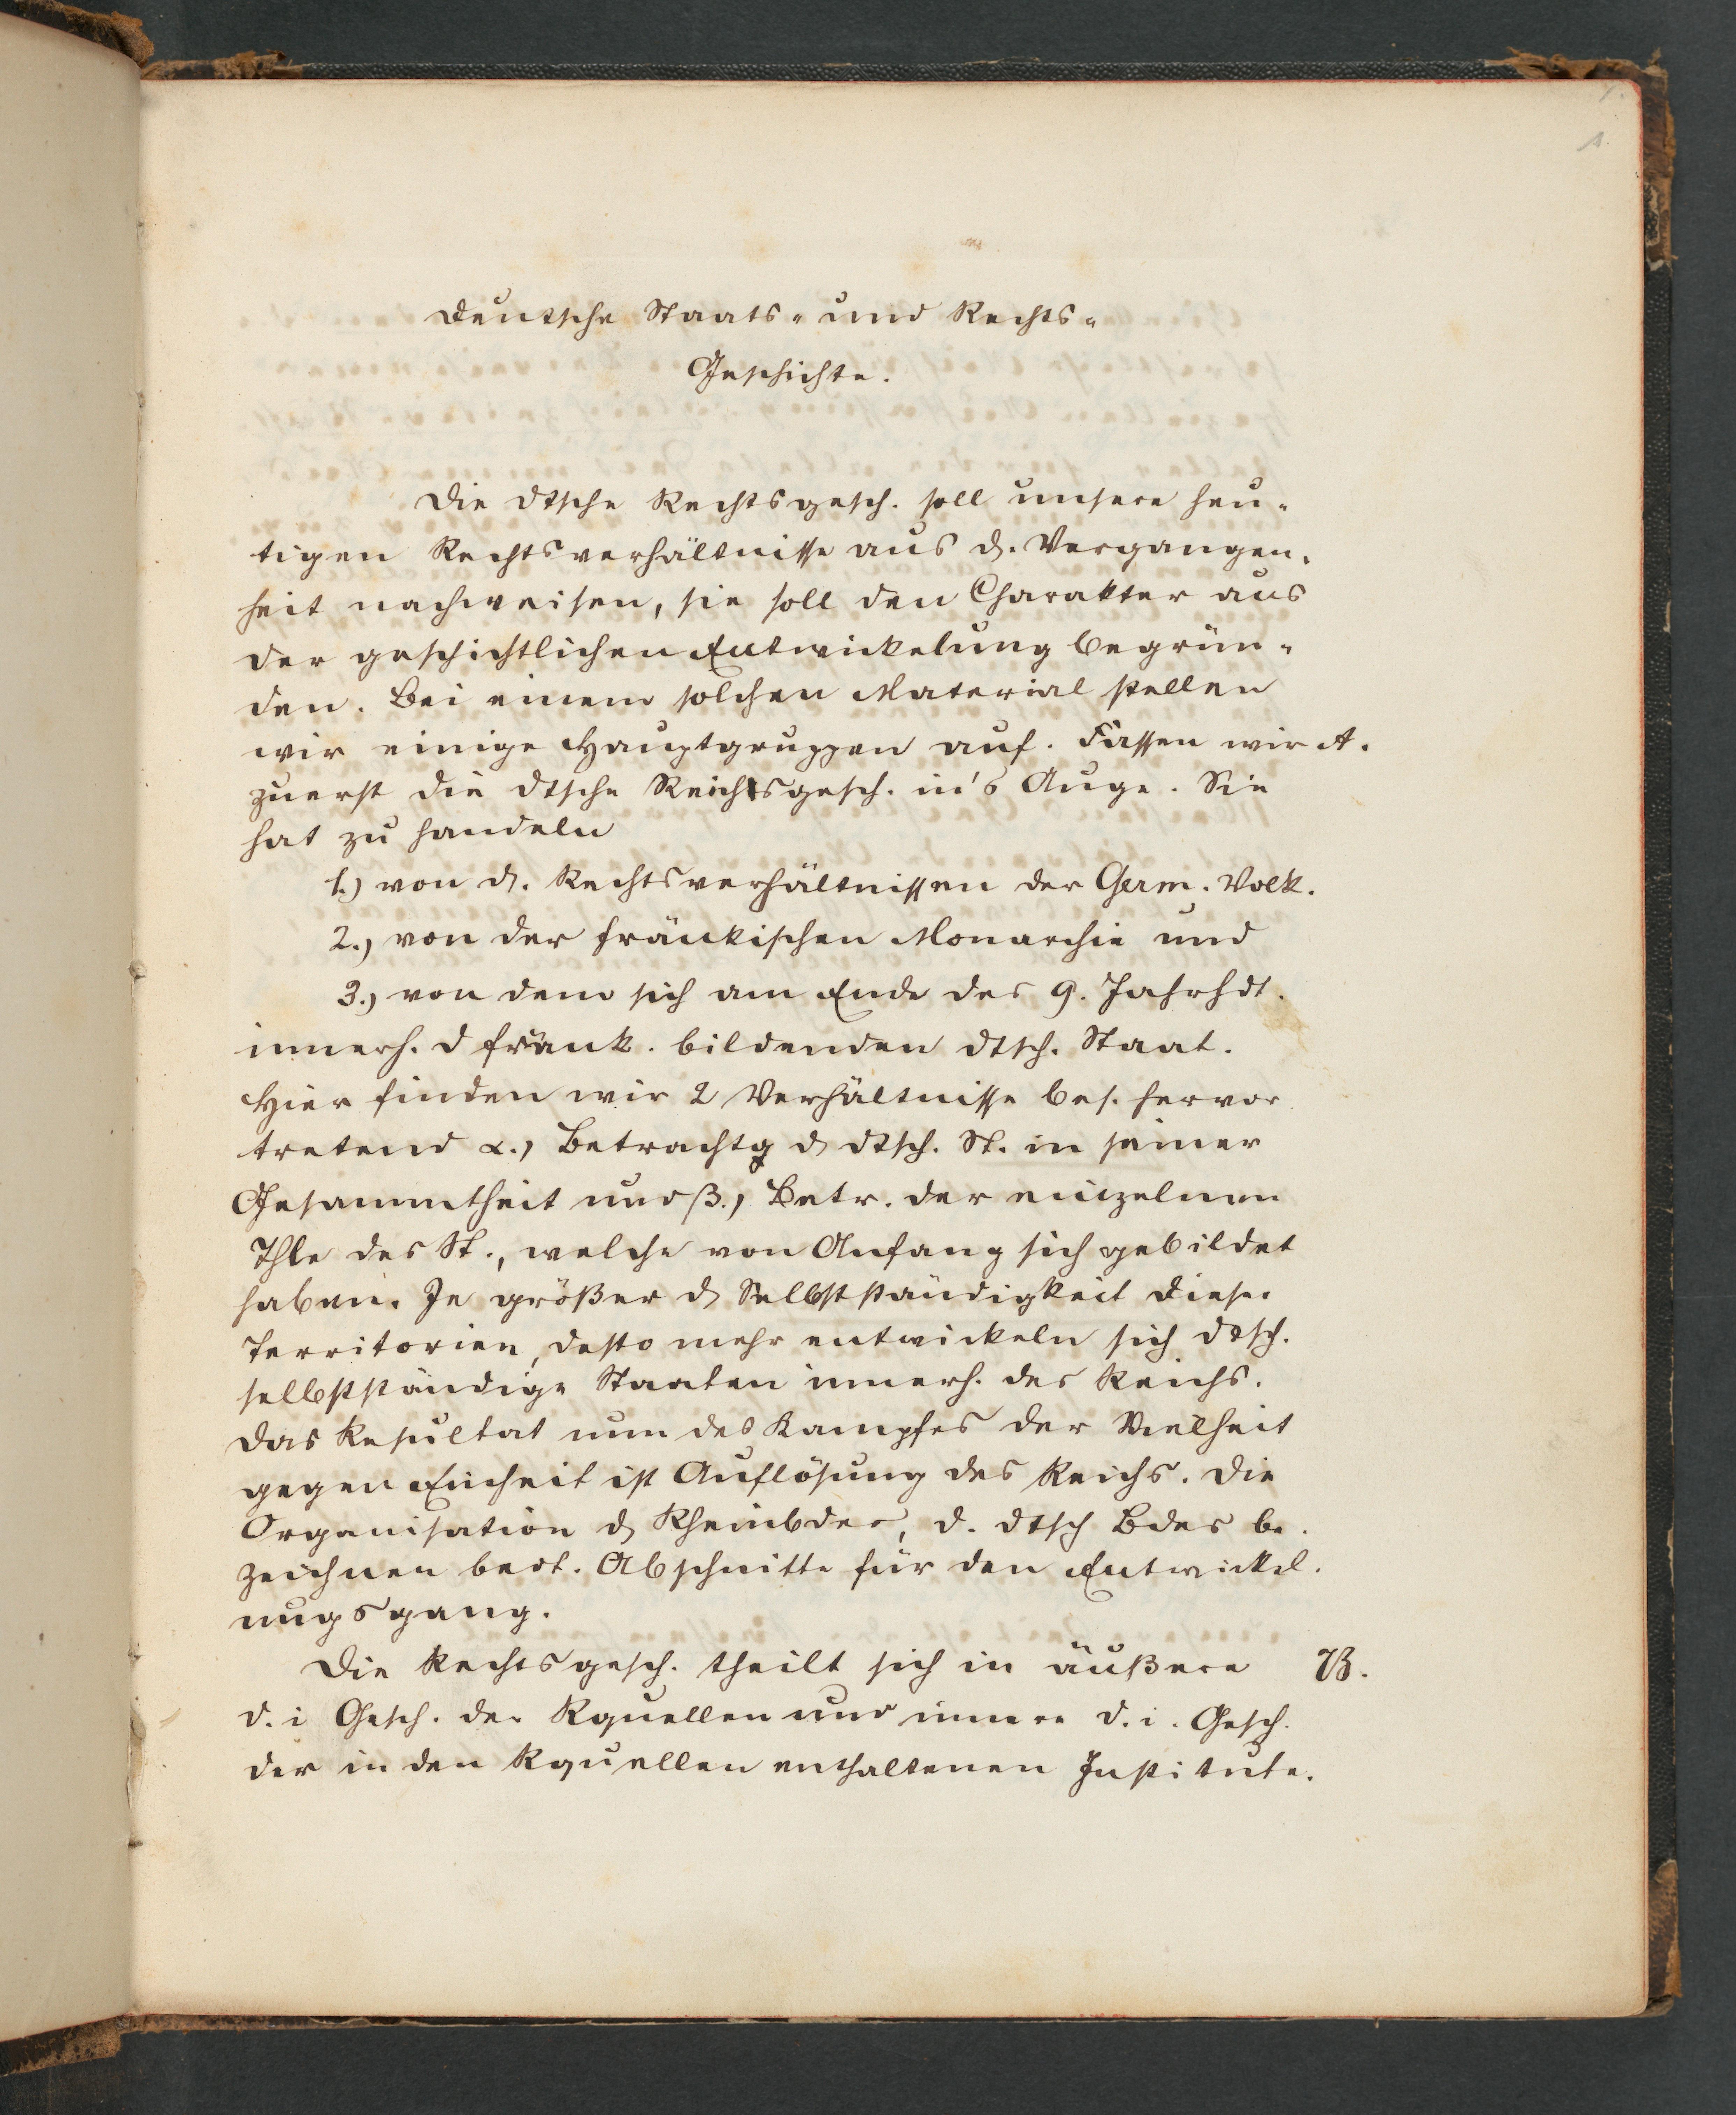 1.
Deutsche Staats- und Rechts-
Geschichte.
Die dtsche Rechtsgesch. soll unsere heu-
tigen Rechtsverhältnisse aus d. Vergangen-
heit nachweisen, sie soll den Charakter aus
der geschichtlichen Entwickelung begrün-
den. Bei einem solchen Material stellen
wir einige Hauptgruppen auf. Fassen wir A.
zuerst die dtsche Reichsgesch. in's Auge. Sie
hat zu handeln
1.) von d. Rechtsverhältnissen der Germ. Volk.
2.) von der fränkischen Monarchie und
3.) von dem sich am Ende des 9. Jahrhdt.
innerh. d fränk. bildenden dtsch. Staat.
Hier finden wir 2 Verhältnisse bes. hervor
tretend α.) Betrachtg d dtsch. St. in seiner
Gesammtheit und β.) Betr. der einzelnen
Thle des St., welche von Anfang sich gebildet
haben. Je größer d Selbstständigkeit dieser
Territorien, desto mehr entwickeln sich dtsch.
selbstständige Staaten innerh. des Reichs.
Das Resultat nun des Kampfes der Vielheit
gegen Einheit ist Auflösung des Reichs. Die
Organisation d Rheinbdes, d. dtsch Bdes be-
zeichnen bedt. Abschnitte für den Entwickel-
ungsgang.
Die Rechtsgesch. theilt sich in äußere B.
d. i Gesch. der Rquellen und innere d. i. Gesch.
der in den Rquellen enthaltenen Institute.